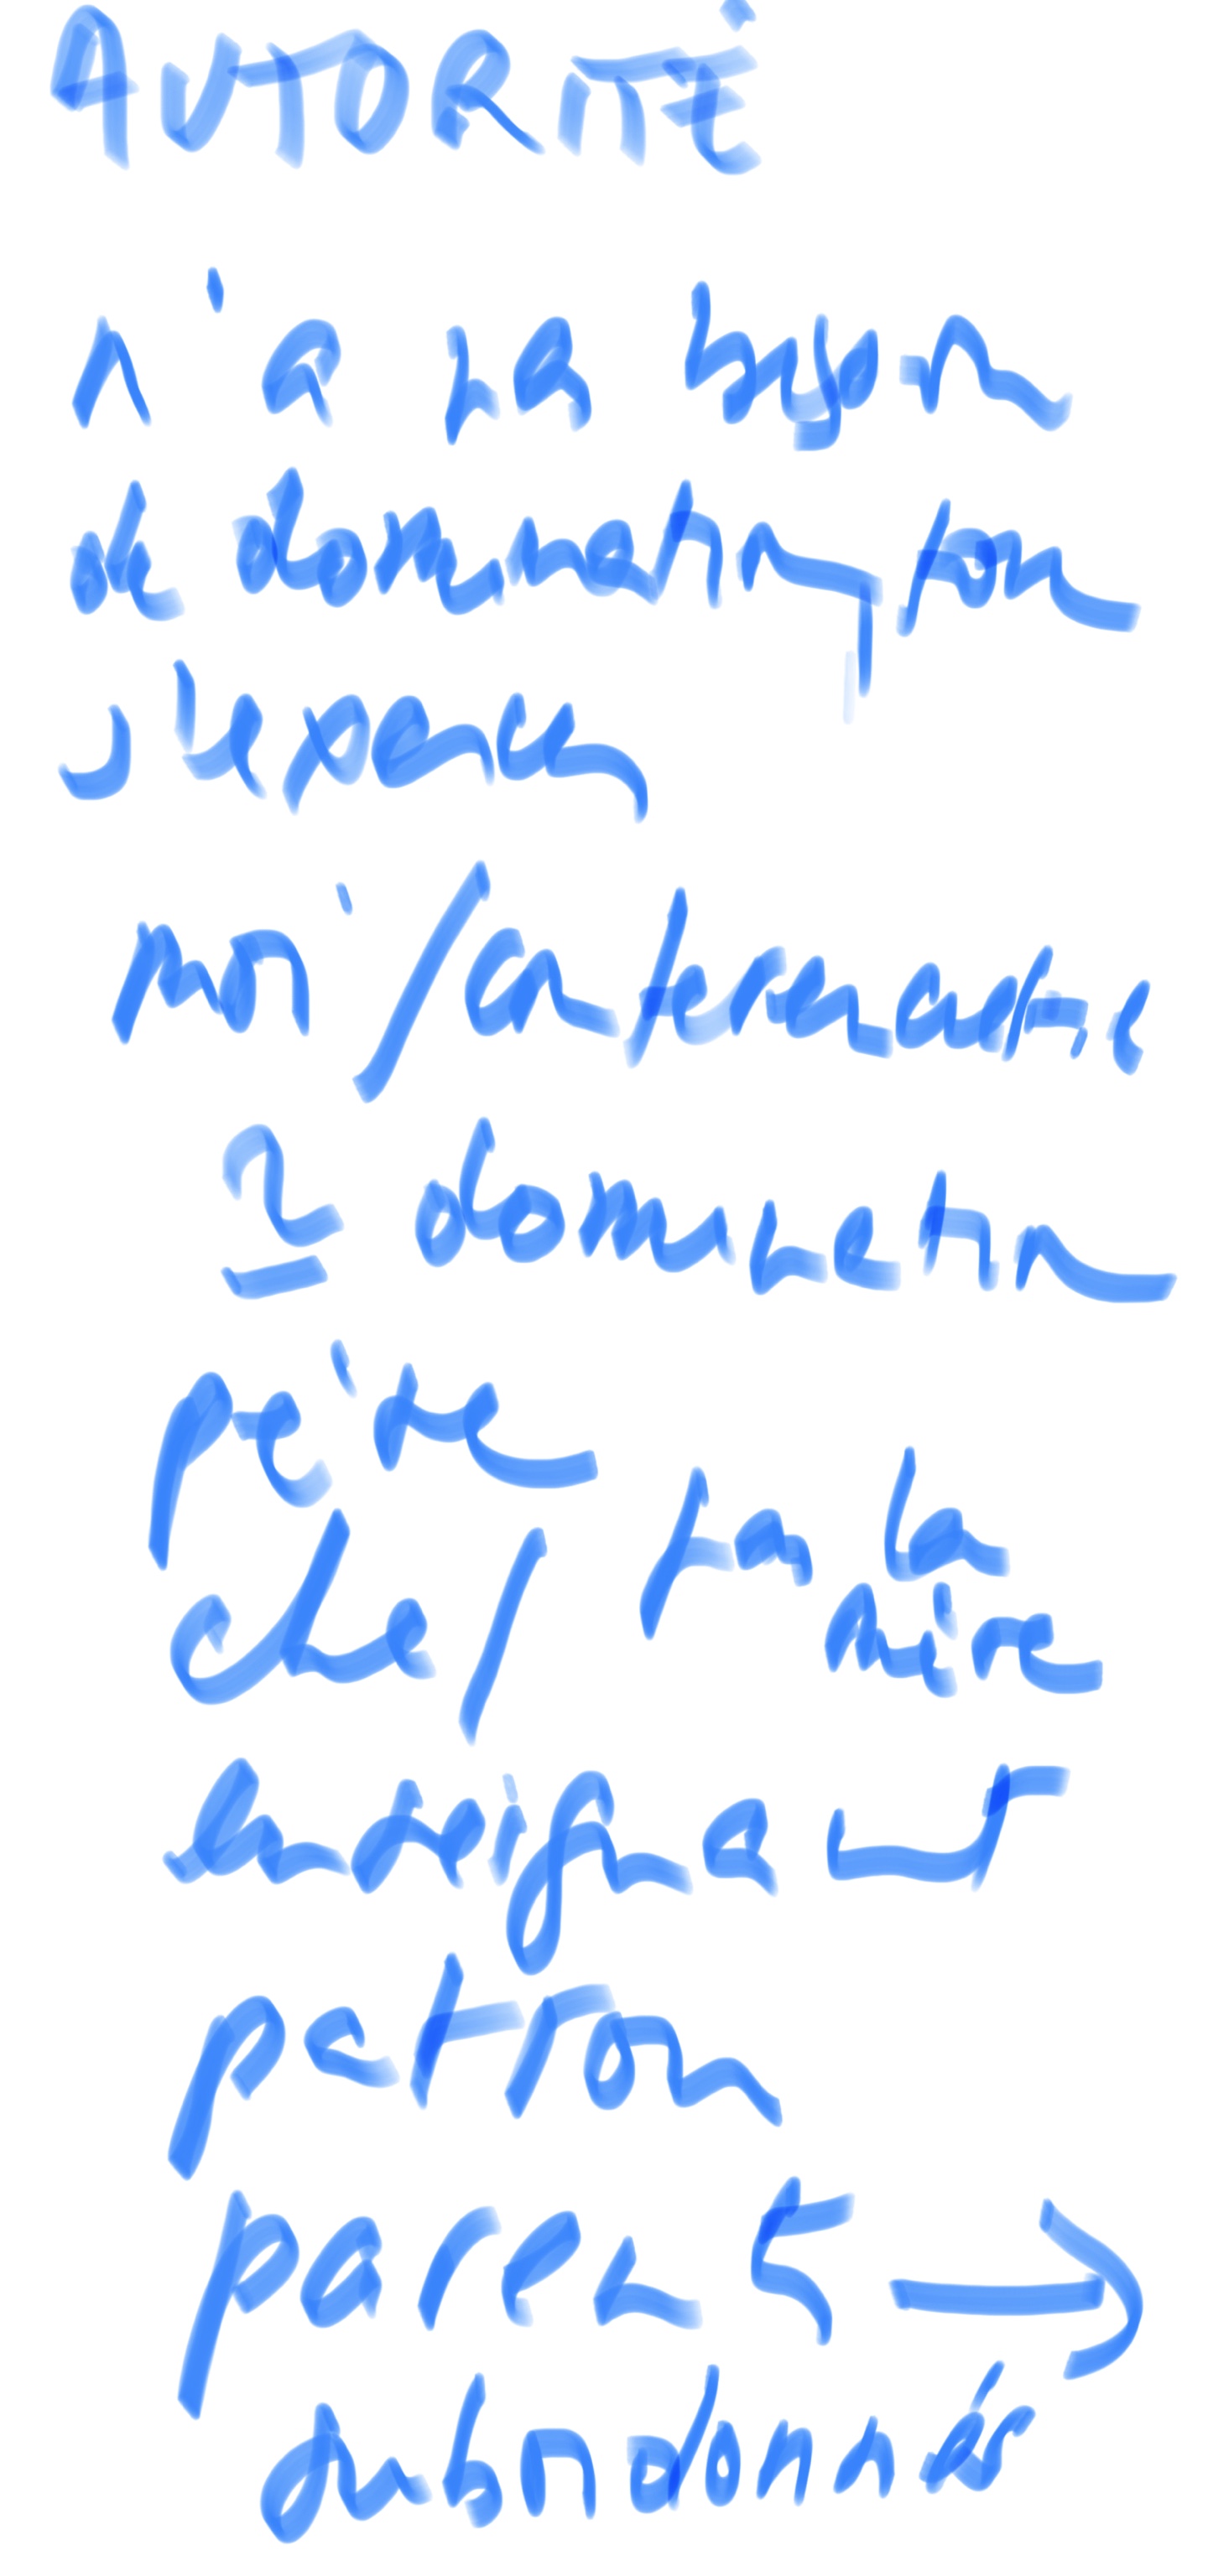 AUTORITÉ
n'a pas besoin
de domination, pour
s'exercer
moi / internautes
domination
père
pas la
chef
mère
enseignant
patron
parents →
subordonnés